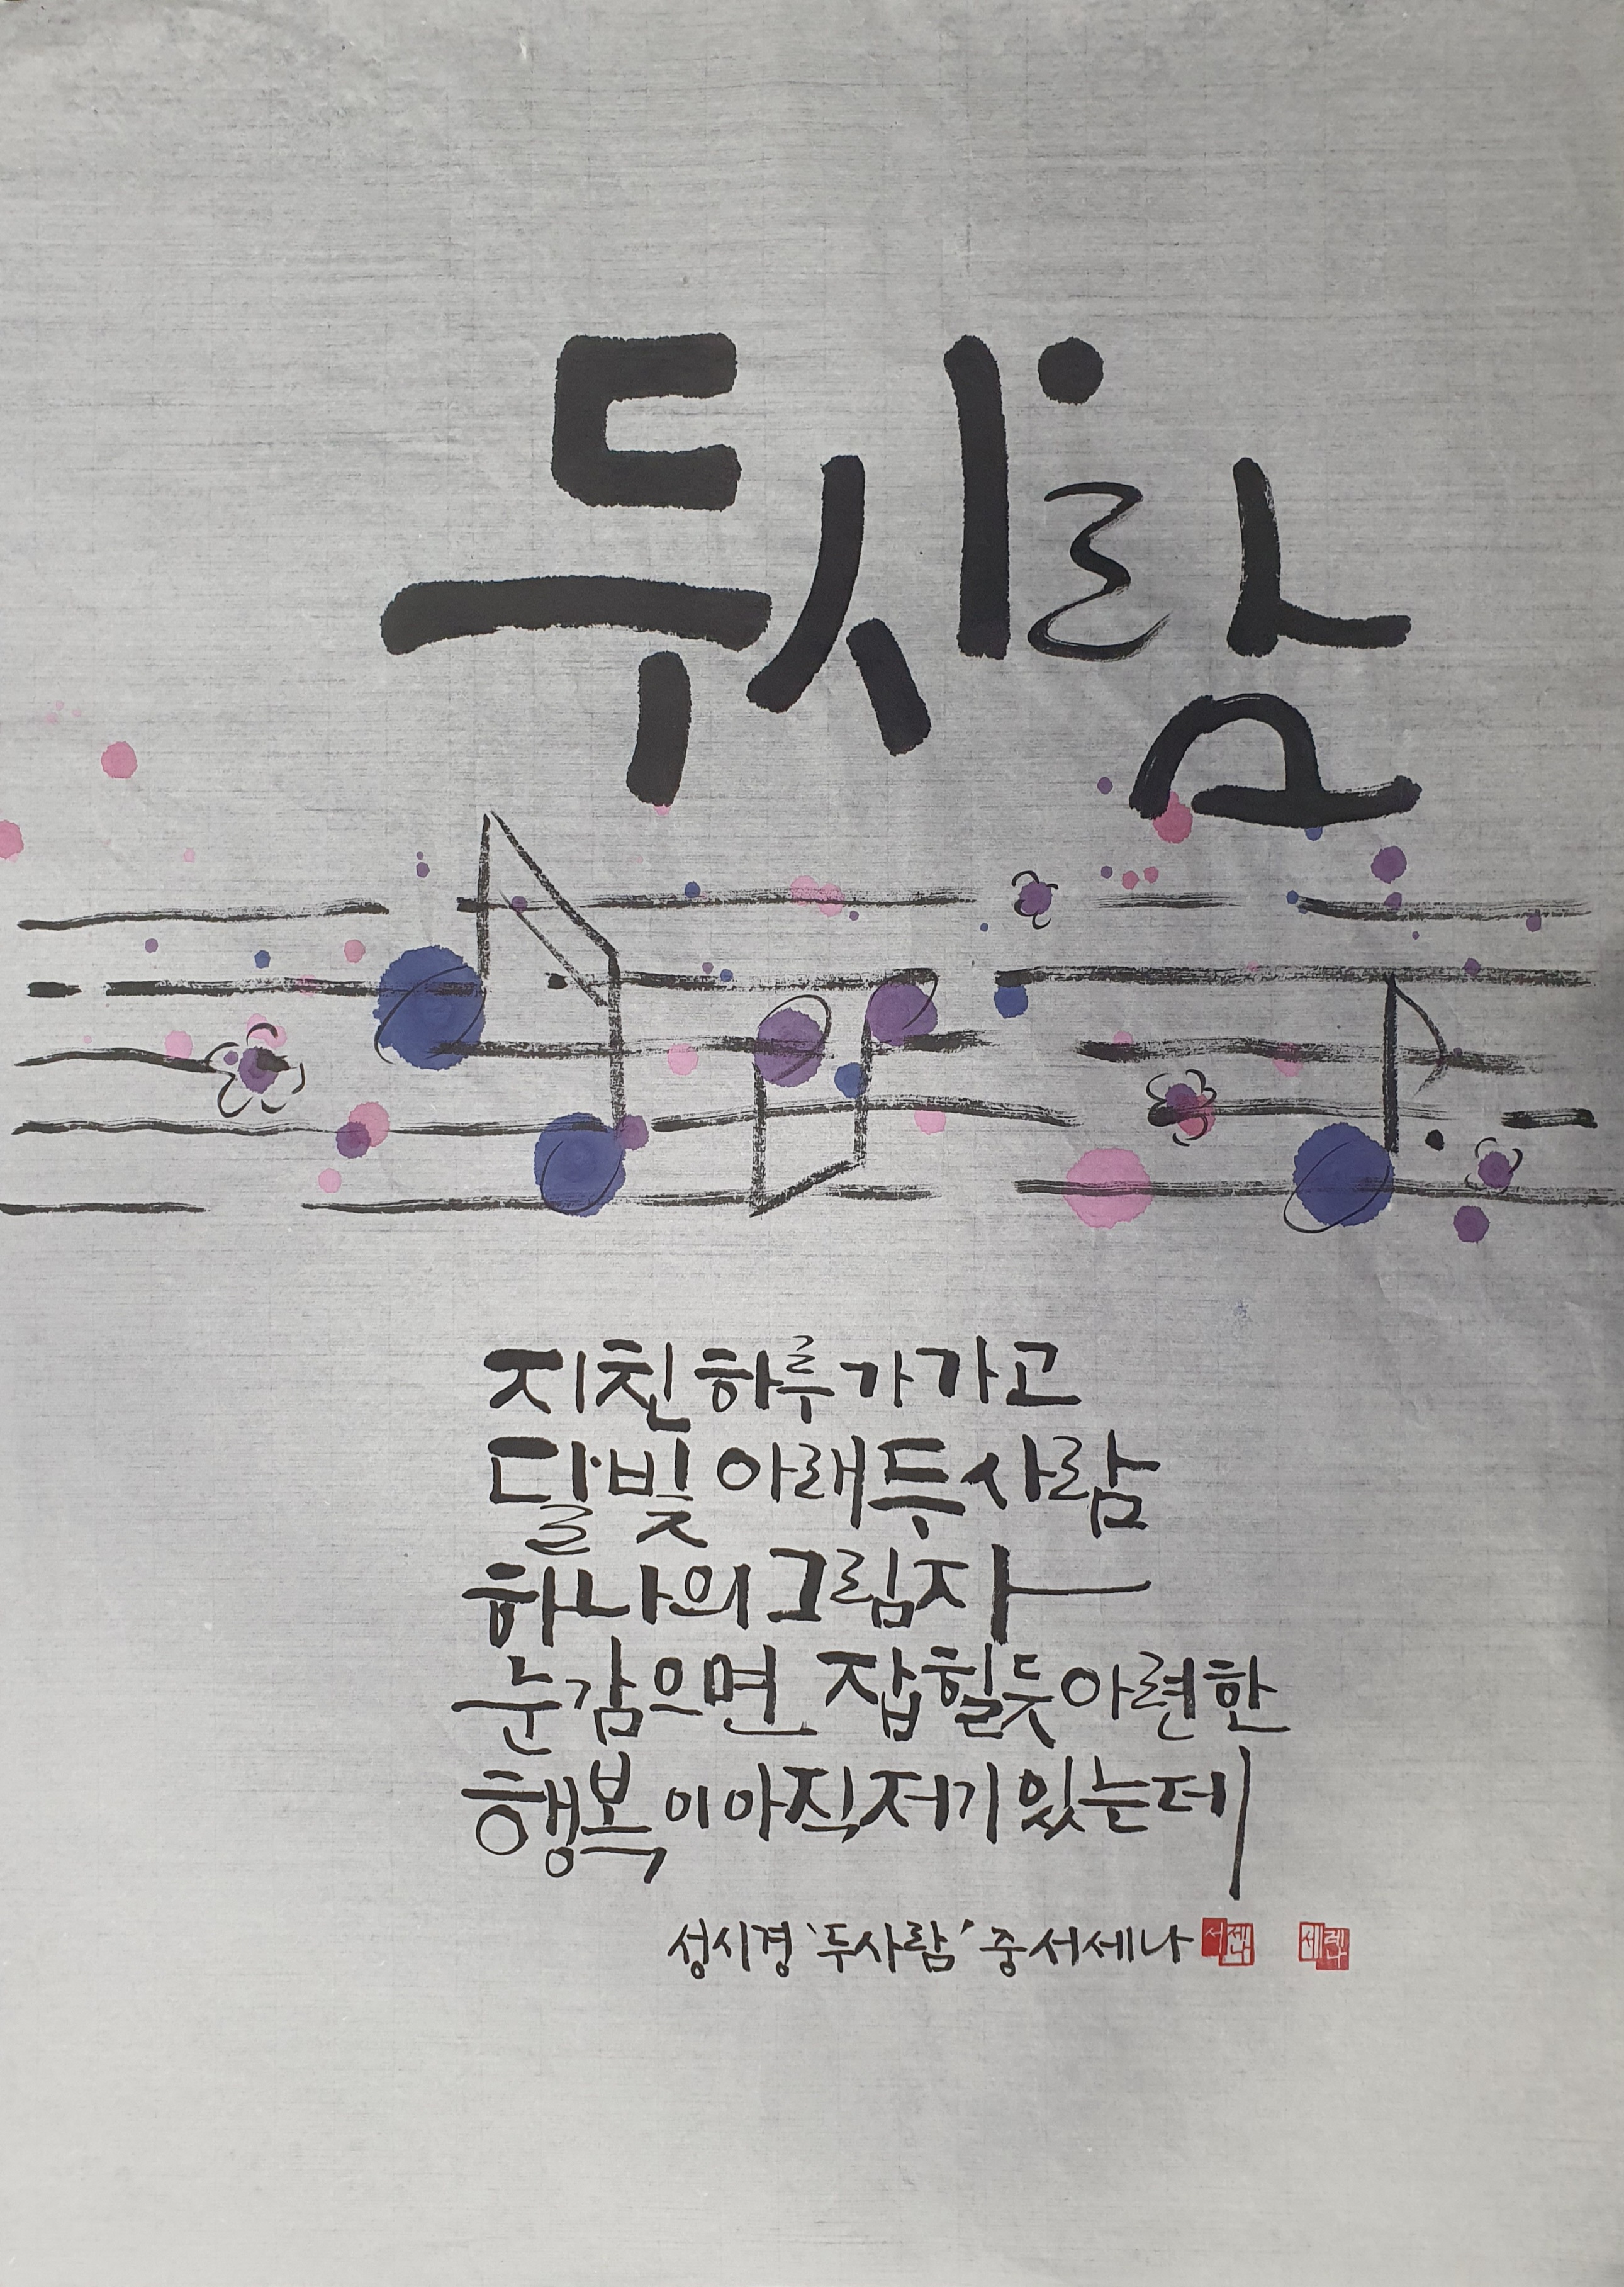 두사람
지친 하루가 가고
달빛 아래 두 사람
하나의 그림자
눈 감으면 잡힐 듯 아련한
행복이 아직 저기 있는데
성시경 '두사람' 중 서세나
서세나
세레나